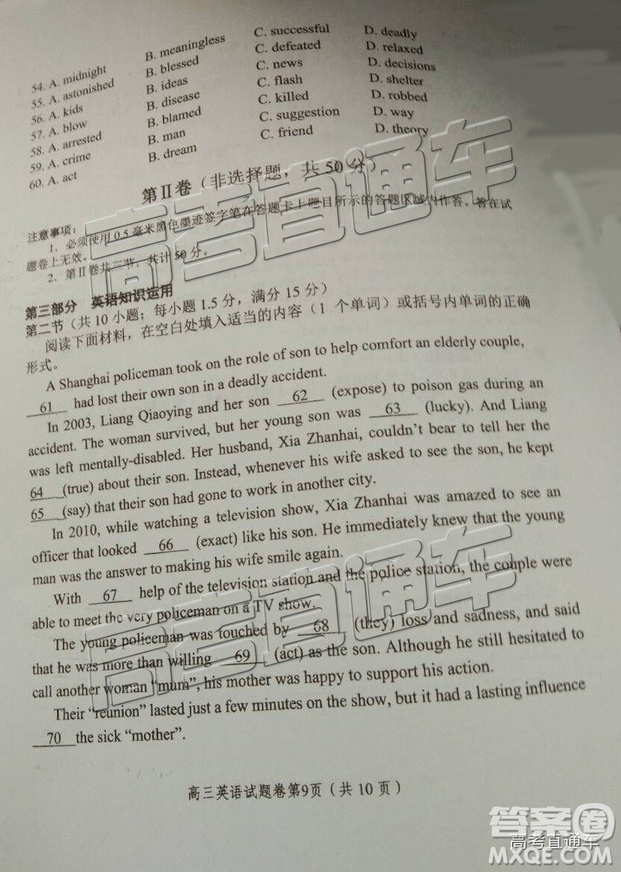 54. A. midnight B. meaningless C. successful D. deadly
55. A. astonished B. blessed C. defeated D. relaxed
56. A. kids B. ideas C. news D. decisions
57. A. blow B. disease C. flash D. shelter
58. A. arrested B. blamed C. killed D. robbed
59. A. crime B. man C. suggestion D. way
60. A. act B. dream C. friend D. theory
第Ⅱ卷（非选择题，共50分）
注意事项：
1．必须使用0.5毫米黑色墨迹签字笔在答题卡上题目所示的答题区域内作答。答在试
题卷上无效。
2．第Ⅱ卷共二节，共计50分。
第三部分 英语知识运用
第二节（共10小题；每小题1.5分，满分15分）
阅读下面材料，在空白处填入适当的内容（1个单词）或括号内单词的正确
形式。
A Shanghai policeman took on the role of son to help comfort an elderly couple,
61 had lost their own son in a deadly accident.
In 2003, Liang Qiaoying and her son 62 (expose) to poison gas during an
accident. The woman survived, but her young son was 63 (lucky). And Liang
was left mentally-disabled. Her husband, Xia Zhanhai, couldn't bear to tell her the
64 (true) about their son. Instead, whenever his wife asked to see the son, he kept
65 (say) that their son had gone to work in another city.
In 2010, while watching a television show, Xia Zhanhai was amazed to see an
officer that looked 66 (exact) like his son. He immediately knew that the young
man was the answer to making his wife smile again.
With 67 help of the television station and the police station, the couple were
able to meet the very policeman on a TV show.
The young policeman was touched by 68 (they) loss and sadness, and said
that he was more than willing 69 (act) as the son. Although he still hesitated to
call another woman “mum”, his mother was happy to support his action.
Their “reunion” lasted just a few minutes on the show, but it had a lasting influence
70 the sick “mother”.
高三英语试题卷第9页（共10页）
高考直通车
高考直通车
高考直通车
答案圈
高考直通车
MXQE.COM